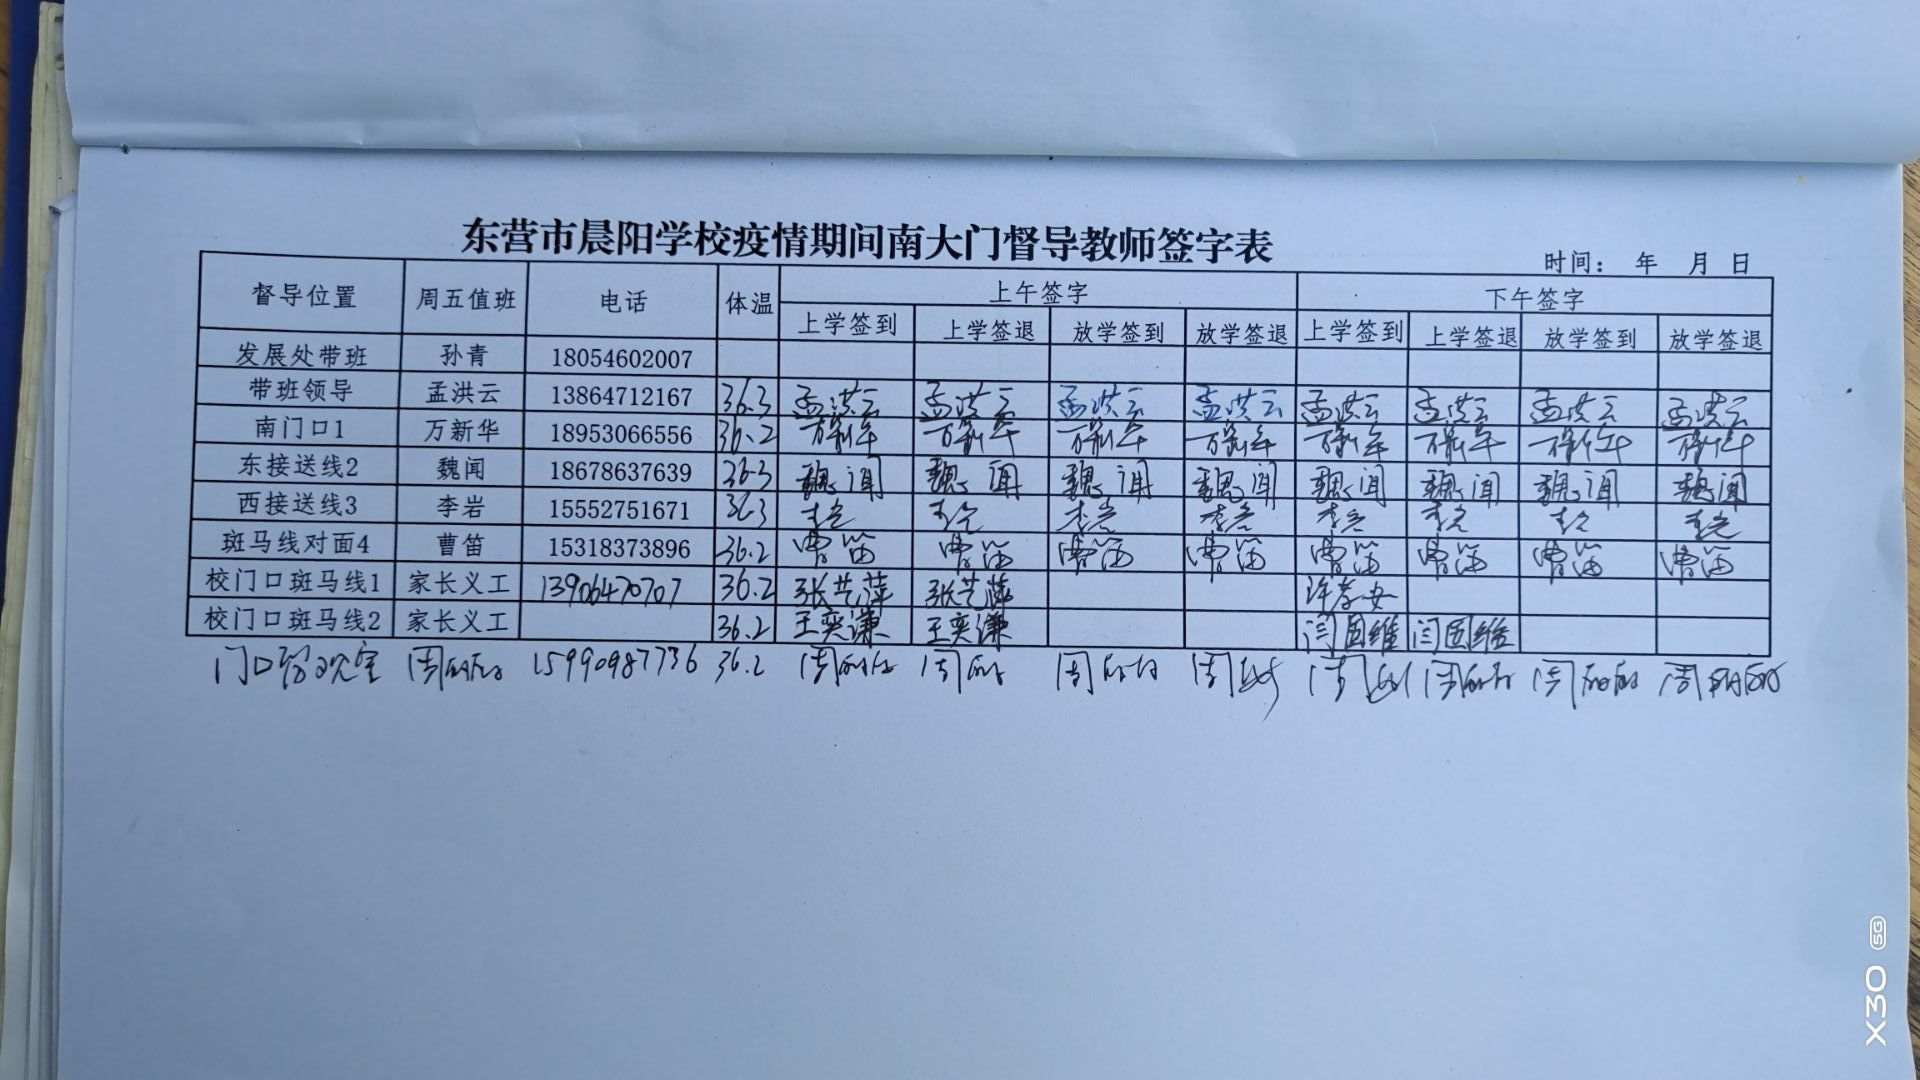 东营市晨阳学校疫情期间南大门督导教师签字表
时间： 年 月 日
督导位置 周五值班 电话 体温 上午签字 下午签字
上学签到 上学签退 放学签到 放学签退 上学签到 上学签退 放学签到 放学签退
发展处带班 孙青 18054602007
带班领导 孟洪云 13864712167 36.3 孟洪云 孟洪云 孟洪云 孟洪云 孟洪云 孟洪云 孟洪云 孟洪云
南门口1 万新华 18953066556 36.2 万新华 万新华 万新华 万新华 万新华 万新华 万新华 万新华
东接送线2 魏闻 18678637639 36.3 魏闻 魏闻 魏闻 魏闻 魏闻 魏闻 魏闻 魏闻
西接送线3 李岩 15552751671 36.3 李岩 李岩 李岩 李岩 李岩 李岩 李岩 李岩
斑马线对面4 曹笛 15318373896 36.2 曹笛 曹笛 曹笛 曹笛 曹笛 曹笛 曹笛 曹笛
校门口斑马线1 家长义工 13906470707 36.2 张艺萍 张艺萍 许孝安
校门口斑马线2 家长义工 36.2 王奕谦 王奕谦 闫国维 闫国维
门口留观室 周 15990987736 36.2 周 周 周 周 周 周 周 周
X30 5G